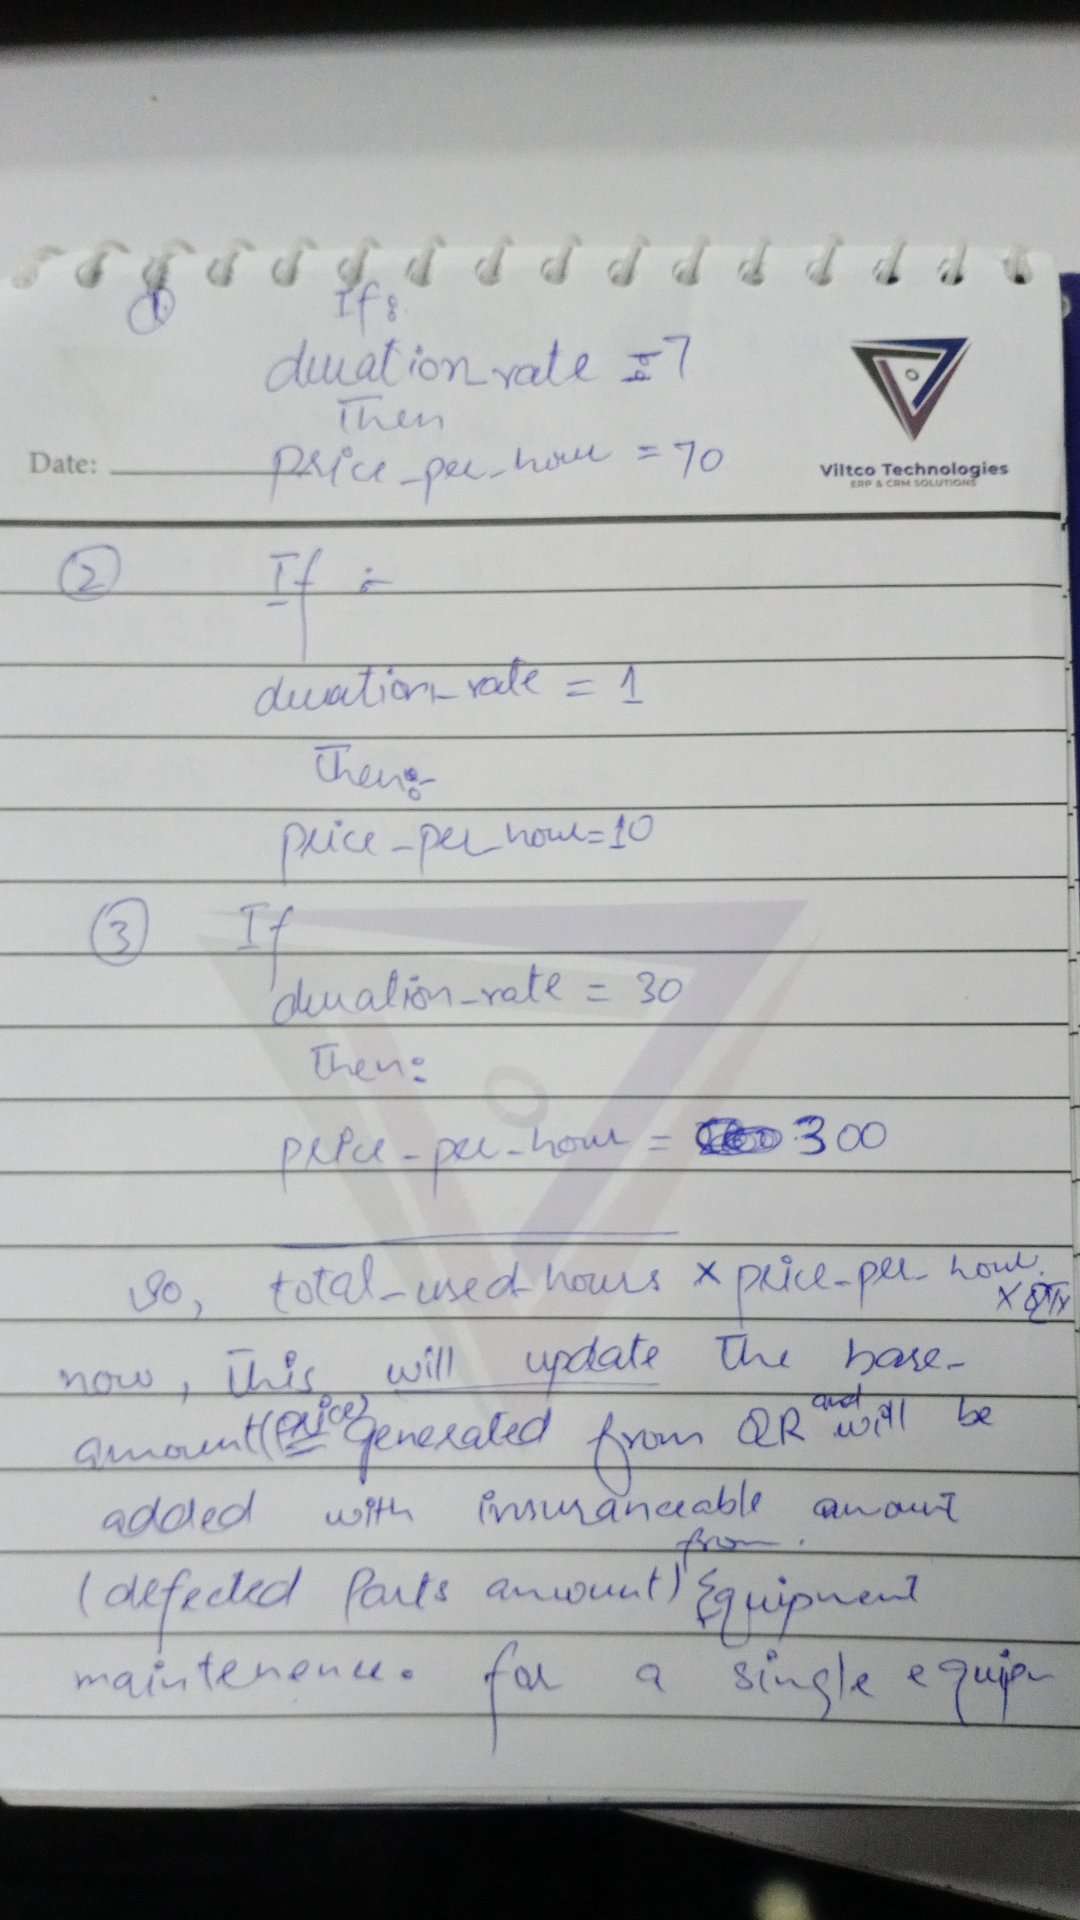 ① If:
duration_rate = 7
Then
Date: price_per_hour = 70
Viltco Technologies
ERP & CRM SOLUTIONS
② If :-
duration_rate = 1
Then:-
price_per_hour=10
③ If
duration_rate = 30
Then:
price_per_hour = 300
So, total_used_hours × price_per_hour.
× QTY
now, This will update the base-
amount (price) generated from QR and will be
added with insuranceable amount
(defected Parts amount) from Equipment
maintenence. for a single equip